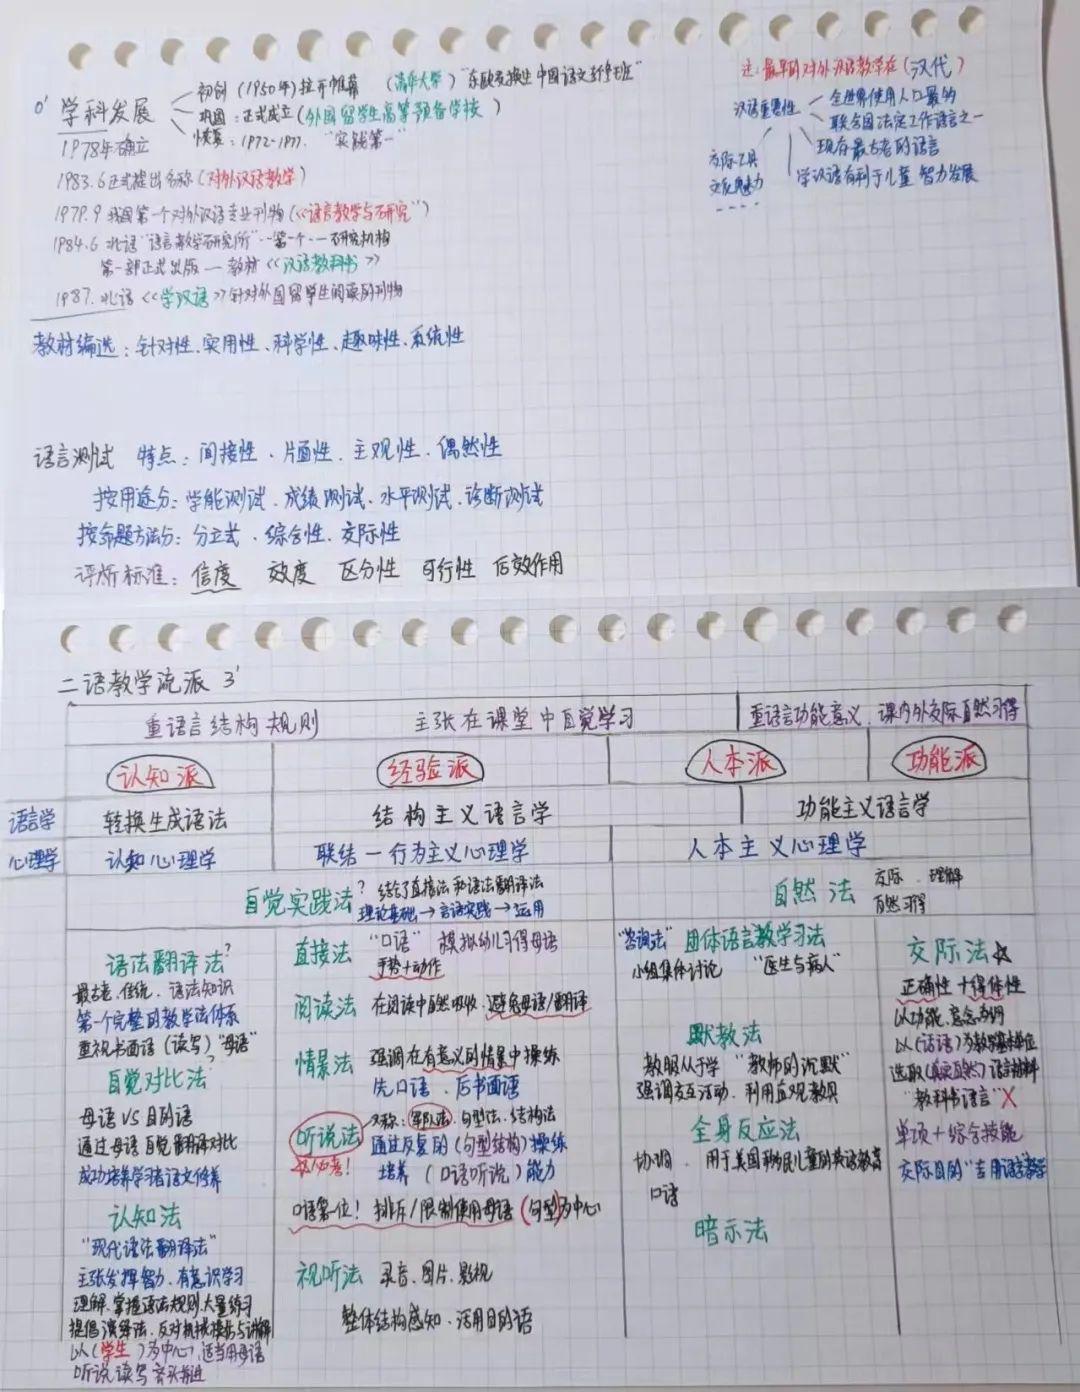 0' 学科发展
初创(1950年)拉开帷幕 (清华大学)"东欧交换生中国语文专修班"
巩固:正式成立(外国留学生高等预备学校)
恢复:1972-1977. "实践第一"
1978年确立
1983.6正式提出名称(对外汉语教学)
1979.9 我国第一个对外汉语专业刊物(《语言教学与研究》)
1984.6 北语"语言教学研究所"…第一个…研究机构
第一部正式出版—教材《汉语教科书》
1987. 北语《学汉语》针对外国留学生阅读的刊物
注:最早的对外汉语教学在(汉代)
汉语重要性
全世界使用人口最多的
联合国法定工作语言之一
现存最古老的语言
学汉语有利于儿童智力发展
交际工具
文化魅力
教材编选:针对性、实用性、科学性、趣味性、系统性
语言测试 特点:间接性、片面性、主观性、偶然性
按用途分:学能测试、成绩测试、水平测试、诊断测试
按命题方法分:分立式、综合性、交际性
评所标准:信度 效度 区分性 可行性 后效作用
二语教学流派 3'
重语言结构规则 主张在课堂中自觉学习
重语言功能意义、课内外交际自然习得
认知派 经验派 人本派 功能派
语言学 转换生成语法 结构主义语言学 功能主义语言学
心理学 认知心理学 联结—行为主义心理学 人本主义心理学
自觉实践法? 结合了直接法和语法翻译法
理论基础→言语实践→运用
自然法 交际、理解
自然习得
语法翻译法?
最古老、传统、语法知识
第一个完整的教学法体系
重视书面语(读写)"母语"
自觉对比法?
母语VS目的语
通过母语自觉翻译对比
成功培养学习者语文修养
认知法
"现代语法翻译法"
主张发挥智力、有意识学习
理解、掌握语法规则、大量练习
提倡演绎法、反对机械模仿与讲解
以(学生)为中心,适当用母语
听说读写齐头并进
直接法 "口语" 模拟幼儿习得母语
手势+动作
阅读法 在阅读中自然吸收、避免母语/翻译
情景法 强调在有意义的情景中操练
先口语、后书面语
听说法 又称:军队法、句型法、结构法
必考! 通过反复的(句型结构)操练
培养(口语听说)能力
口语第一位!排斥/限制使用母语(句型)为中心
视听法 录音、图片、影视
整体结构感知、活用目的语
"咨询法"团体语言教学习法
小组集体讨论 "医生与病人"
默教法
教服从于学 "教师的沉默"
强调交互活动、利用直观教具
全身反应法
协调、用于美国移民儿童的英语教育
口语
暗示法
交际法☆
正确性+得体性
以功能、意念为纲
以(话语)为教学基本单位
选取(真实自然)语言材料
"教科书语言"X
单项+综合技能
交际目的"专用语言"教学